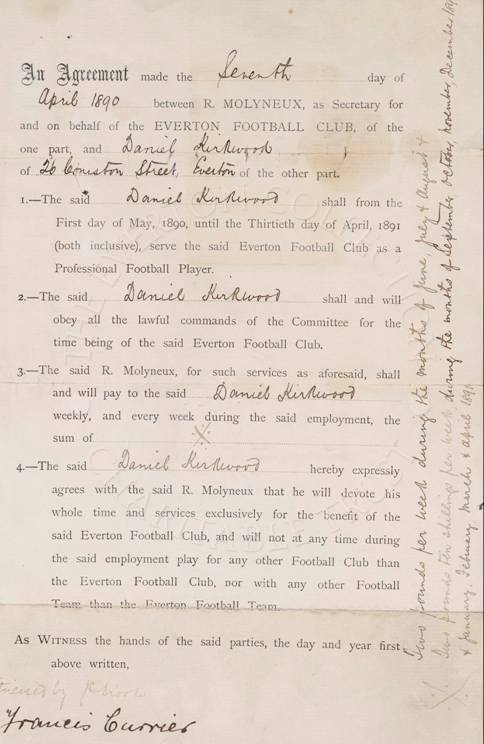 An Agreement made the Seventh day of
April 1890 between R. MOLYNEUX, as Secretary for
and on behalf of the EVERTON FOOTBALL CLUB, of the
one part, and Daniel Kirkwood
of 26 Coniston Street, Everton of the other part.
1.—The said Daniel Kirkwood shall from the
First day of May, 1890, until the Thirtieth day of April, 1891
(both inclusive), serve the said Everton Football Club as a
Professional Football Player.
2.—The said Daniel Kirkwood shall and will
obey all the lawful commands of the Committee for the
time being of the said Everton Football Club.
3.—The said R. Molyneux, for such services as aforesaid, shall
and will pay to the said Daniel Kirkwood
weekly, and every week during the said employment, the
sum of
4.—The said Daniel Kirkwood hereby expressly
agrees with the said R. Molyneux that he will devote his
whole time and services exclusively for the benefit of the
said Everton Football Club, and will not at any time during
the said employment play for any other Football Club than
the Everton Football Club, nor with any other Football
Team than the Everton Football Team.
AS WITNESS the hands of the said parties, the day and year first
above written,
by
Francis Currier
Two pounds per week during the months of June, July & August &
Two pounds ten shillings per week during the months of September October, November, December 1890
& January, February March & April 1891
THE EVERTON COLLECTION
CHARITABLE TRUST